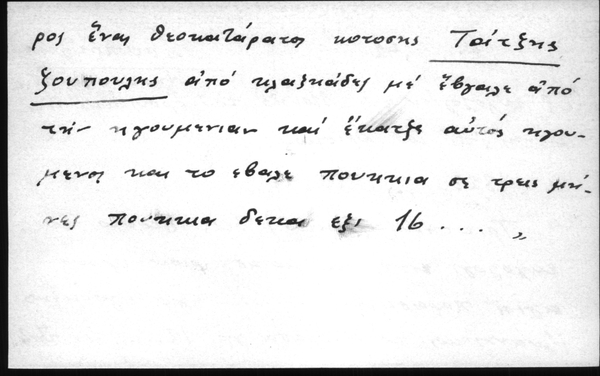 ρος ἕνας θεοκατάρατος κοτοσης Τσίτζης
ζουπουλης ἀπό κλαξκάδες μέ ἔβγαλε ἀπό
τήν ηγουμενιαν καί ἔκατζε αὐτός ηγου-
μενος και το εβαλε πουκκια σε τρεις μή-
νες πουκκια δεκα εξι 16 . . . „